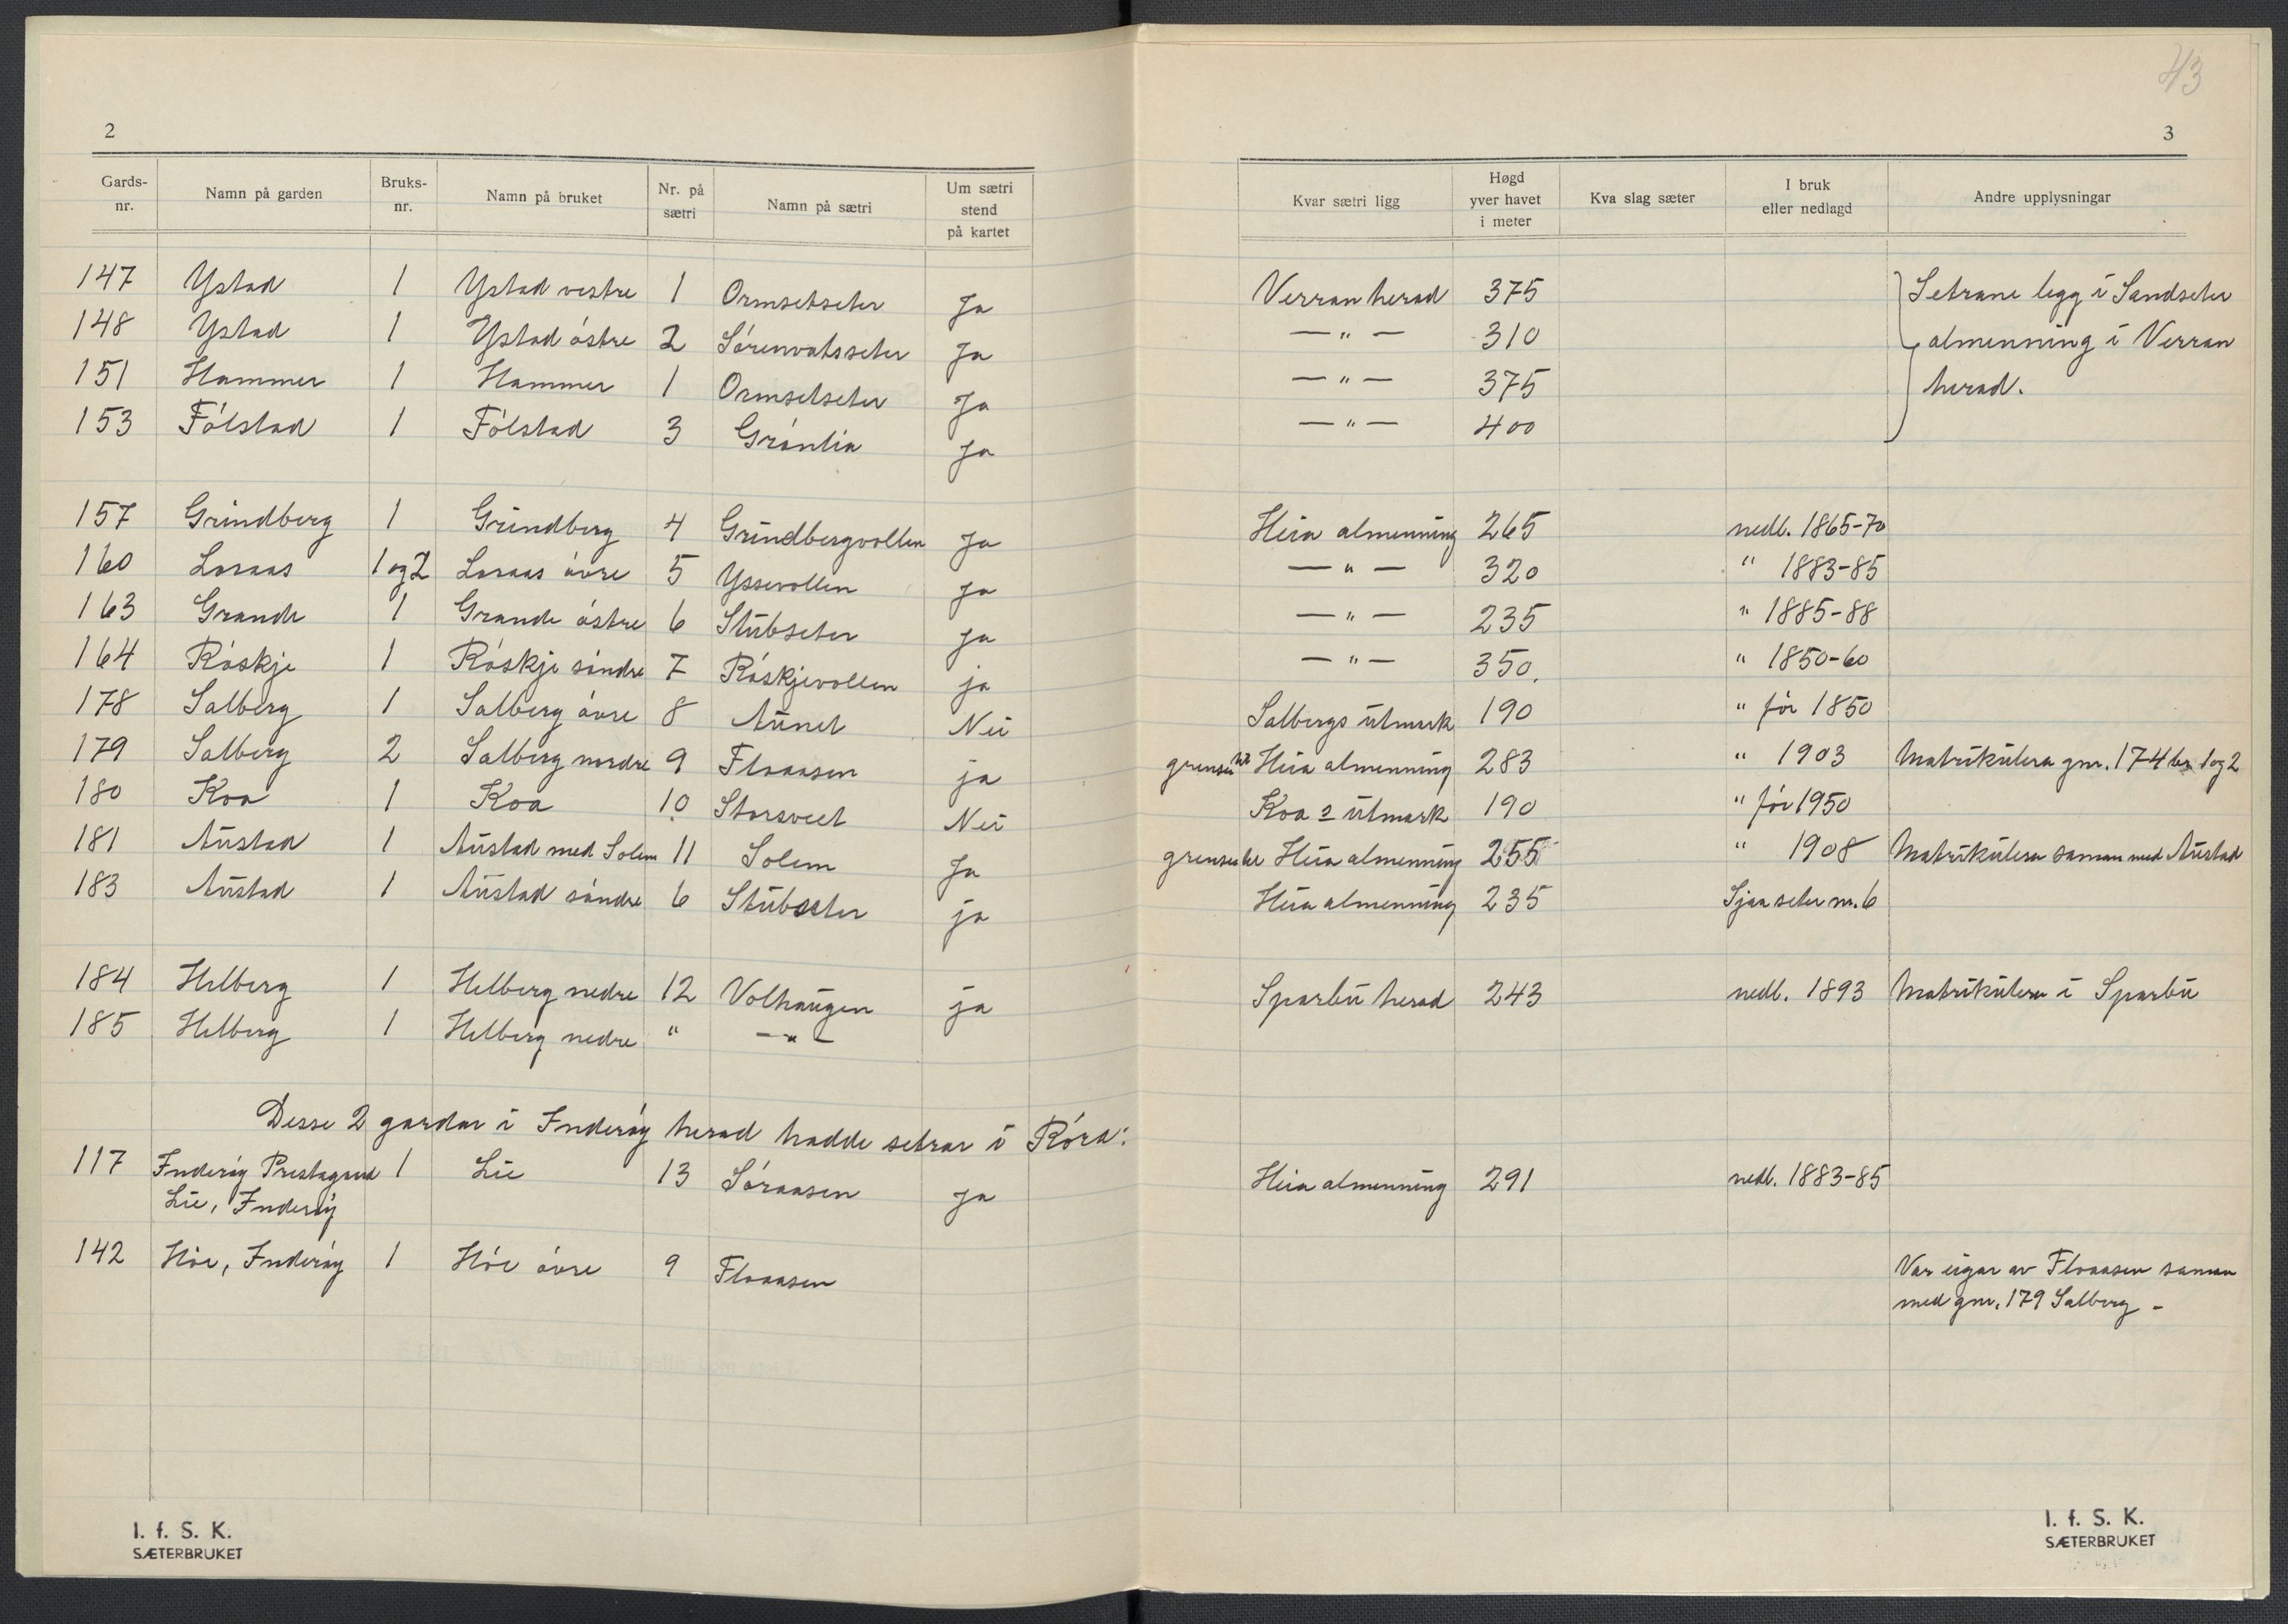 43
2
3
Gards-nr. Namn på garden Bruks-nr. Namn på bruket Nr. på sætri Namn på sætri Um sætri stend på kartet Kvar sætri ligg Høgd yver havet i meter Kva slag sæter I bruk eller nedlagd Andre upplysningar
147 Ystad 1 Ystad vestre 1 Ormsetseter Ja Verran herad 375 Setrane ligg i Sandseter
148 Ystad 1 Ystad östre 2 Sörenvatsseter Ja — " — 310 almenning i Verran
151 Hammer 1 Hammer 1 Ormsetseter Ja — " — 375 herad.
153 Fölstad 1 Fölstad 3 Grönlia Ja — " — 400
157 Grindberg 1 Grindberg 4 Grindbergvollen Ja Heia almenning 265 nedl. 1865-70
160 Loraas 1 og 2 Loraas övre 5 Yssevollen Ja — " — 320 " 1883-85
163 Grande 1 Grande östre 6 Stubseter Ja — " — 235 " 1885-88
164 Röskje 1 Röskje söndre 7 Röskjevollen ja — " — 350. " 1850-60
178 Salberg 1 Salberg övre 8 Aunet Nei Salbergs utmark 190 " för 1850
179 Salberg 2 Salberg nordre 9 Floaasen ja grensar til Heia almenning 283 " 1903 Matrikulera gnr. 174 br 1 og 2
180 Koa 1 Koa 10 Storsveet Nei Koa s utmark 190 " för 1950
181 Austad 1 Austad med Solem 11 Solem Ja grensar til Heia almenning 255 " 1908 Matrikulera saman med Austad
183 Austad 1 Austad söndre 6 Stubseter ja Heia almenning 235 Sjaa seter nr. 6
184 Helberg 1 Helberg nedre 12 Volhaugen ja Sparbu herad 243 nedl. 1893 Matrikulera i Sparbu
185 Helberg 1 Helberg nedre " — " —
Desse 2 gardar i Inderöy herad hadde setrar i Röra:
117 Inderöy Prestegard 1 Lie 13 Söraasen Ja Heia almenning 291 nedl. 1883-85
Lie, Inderöy
142 Höe, Inderöy 1 Höe övre 9 Floaasen Var eigar av Floaasen saman
med gnr. 179 Salberg -
I. f. S. K.
SÆTERBRUKET
I. f. S. K.
SÆTERBRUKET